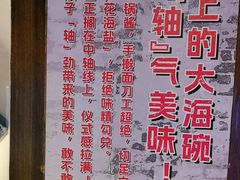 上的大海碗
轴』气美味！
锅酱”，手擀面刀工超绝，切足
花海盐”，拒绝味精勾兑，
正搁在中轴线上，仪式感拉满，
子“轴”劲带来的美味，敢不敢